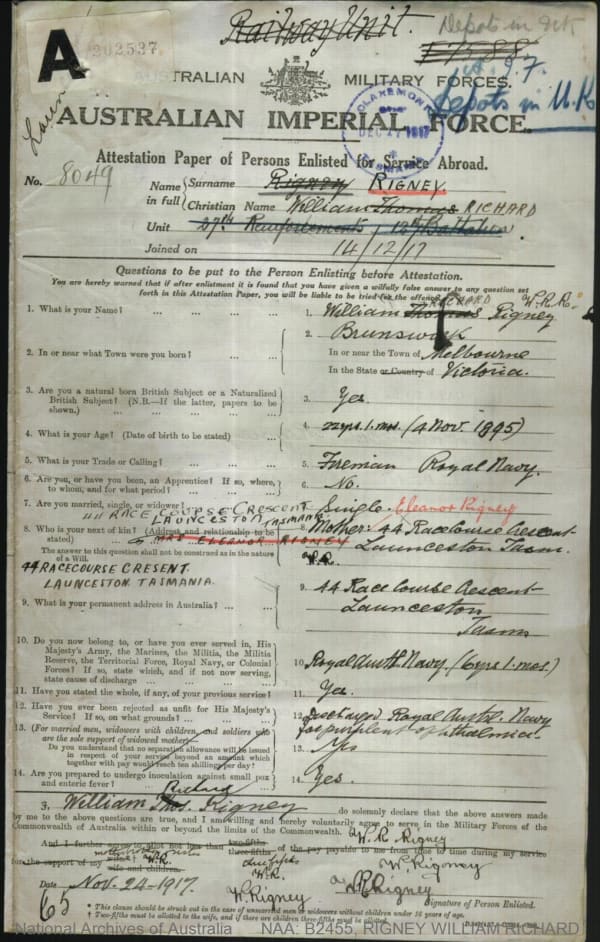 Railway Unit.
Depots in
A
202537
Depots in U.K.
AUSTRALIAN MILITARY FORCES.
CLAREMONT
DEC 17 1917
TASMANIA
AUSTRALIAN IMPERIAL FORCE.
Attestation Paper of Persons Enlisted for Service Abroad.
No. 8049
Name in full { Surname Rigney RIGNEY
Christian Name William Thomas RICHARD
Unit 27th Reinforcements, 12th Battalion
Joined on 14/12/17
Questions to be put to the Person Enlisting before Attestation.
You are hereby warned that if after enlistment it is found that you have given a wilfully false answer to any question set
forth in this Attestation Paper, you will be liable to be tried for the offence.
RICHARD W.R.R.
1. What is your Name? ... ... ... 1. William Thomas Rigney
2. Brunswick
2. In or near what Town were you born? ... ... In or near the Town of Melbourne
In the State or Country of Victoria.
3. Are you a natural born British Subject or a Naturalized
British Subject? (N.B.—If the latter, papers to be
shown.) ... ... ... ... 3. Yes.
4. What is your Age? (Date of birth to be stated) ... 4. 22yrs. 1. mos. (4 Nov. 1895)
5. What is your Trade or Calling? ... ... ... 5. Fireman Royal Navy.
6. Are you, or have you been, an Apprentice? If so, where,
to whom, and for what period? ... ... 6. No.
7. Are you married, single, or widower? ... 7. Single. Eleanor Rigney
44 RACE COURSE CRESCENT
LAUNCESTON TASMANIA
8. Who is your next of kin? (Address and relationship to be
stated) 8. Mother: 44 Racecourse Crescent
MRS ELEANOR RIGNEY Launceston Tasm.
The answer to this question shall not be construed as in the nature
of a Will. W.R.
44 RACECOURSE CRESENT.
LAUNCESTON. TASMANIA.
9. What is your permanent address in Australia? ... ... 9. 44 Race Course Crescent
Launceston
Tasm
10. Do you now belong to, or have you ever served in, His
Majesty's Army, the Marines, the Militia, the Militia
Reserve, the Territorial Force, Royal Navy, or Colonial
Forces? If so, state which, and if not now serving,
state cause of discharge ... ... ... 10. Royal Austn Navy. (6 yrs. 1. mos.)
11. Have you stated the whole, if any, of your previous service? 11. Yes.
12. Have you ever been rejected as unfit for His Majesty's
Service? If so, on what grounds? ... ... 12. Discharged Royal Austn. Navy
for purulent ophthalmia.
13. (For married men, widowers with children, and soldiers who
are the sole support of widowed mother)—
Do you understand that no separation allowance will be issued
in respect of your service beyond an amount which
together with pay would reach ten shillings per day? 13. Yes
14. Are you prepared to undergo inoculation against small pox
and enteric fever? ... ... ... 14. Yes.
Richard
I, William Thos. Rigney do solemnly declare that the above answers made
by me to the above questions are true, and I am willing and hereby voluntarily agree to serve in the Military Forces of the
Commonwealth of Australia within or beyond the limits of the Commonwealth.
W.R. Rigney
And I further agree to allot not less than two-fifths three-fifths of the pay payable to me from time to time during my service
for the support of my wife wife and children.
W.R. W.R. W. Rigney
Date Nov. 24-1917. W. Rigney W.R. Rigney
Signature of Person Enlisted.
65
* This clause should be struck out in the case of unmarried men or widowers without children under 16 years of age.
† Two-fifths must be allotted to the wife, and if there are children three-fifths must be allotted.
National Archives of Australia NAA: B2455, RIGNEY WILLIAM RICHARD